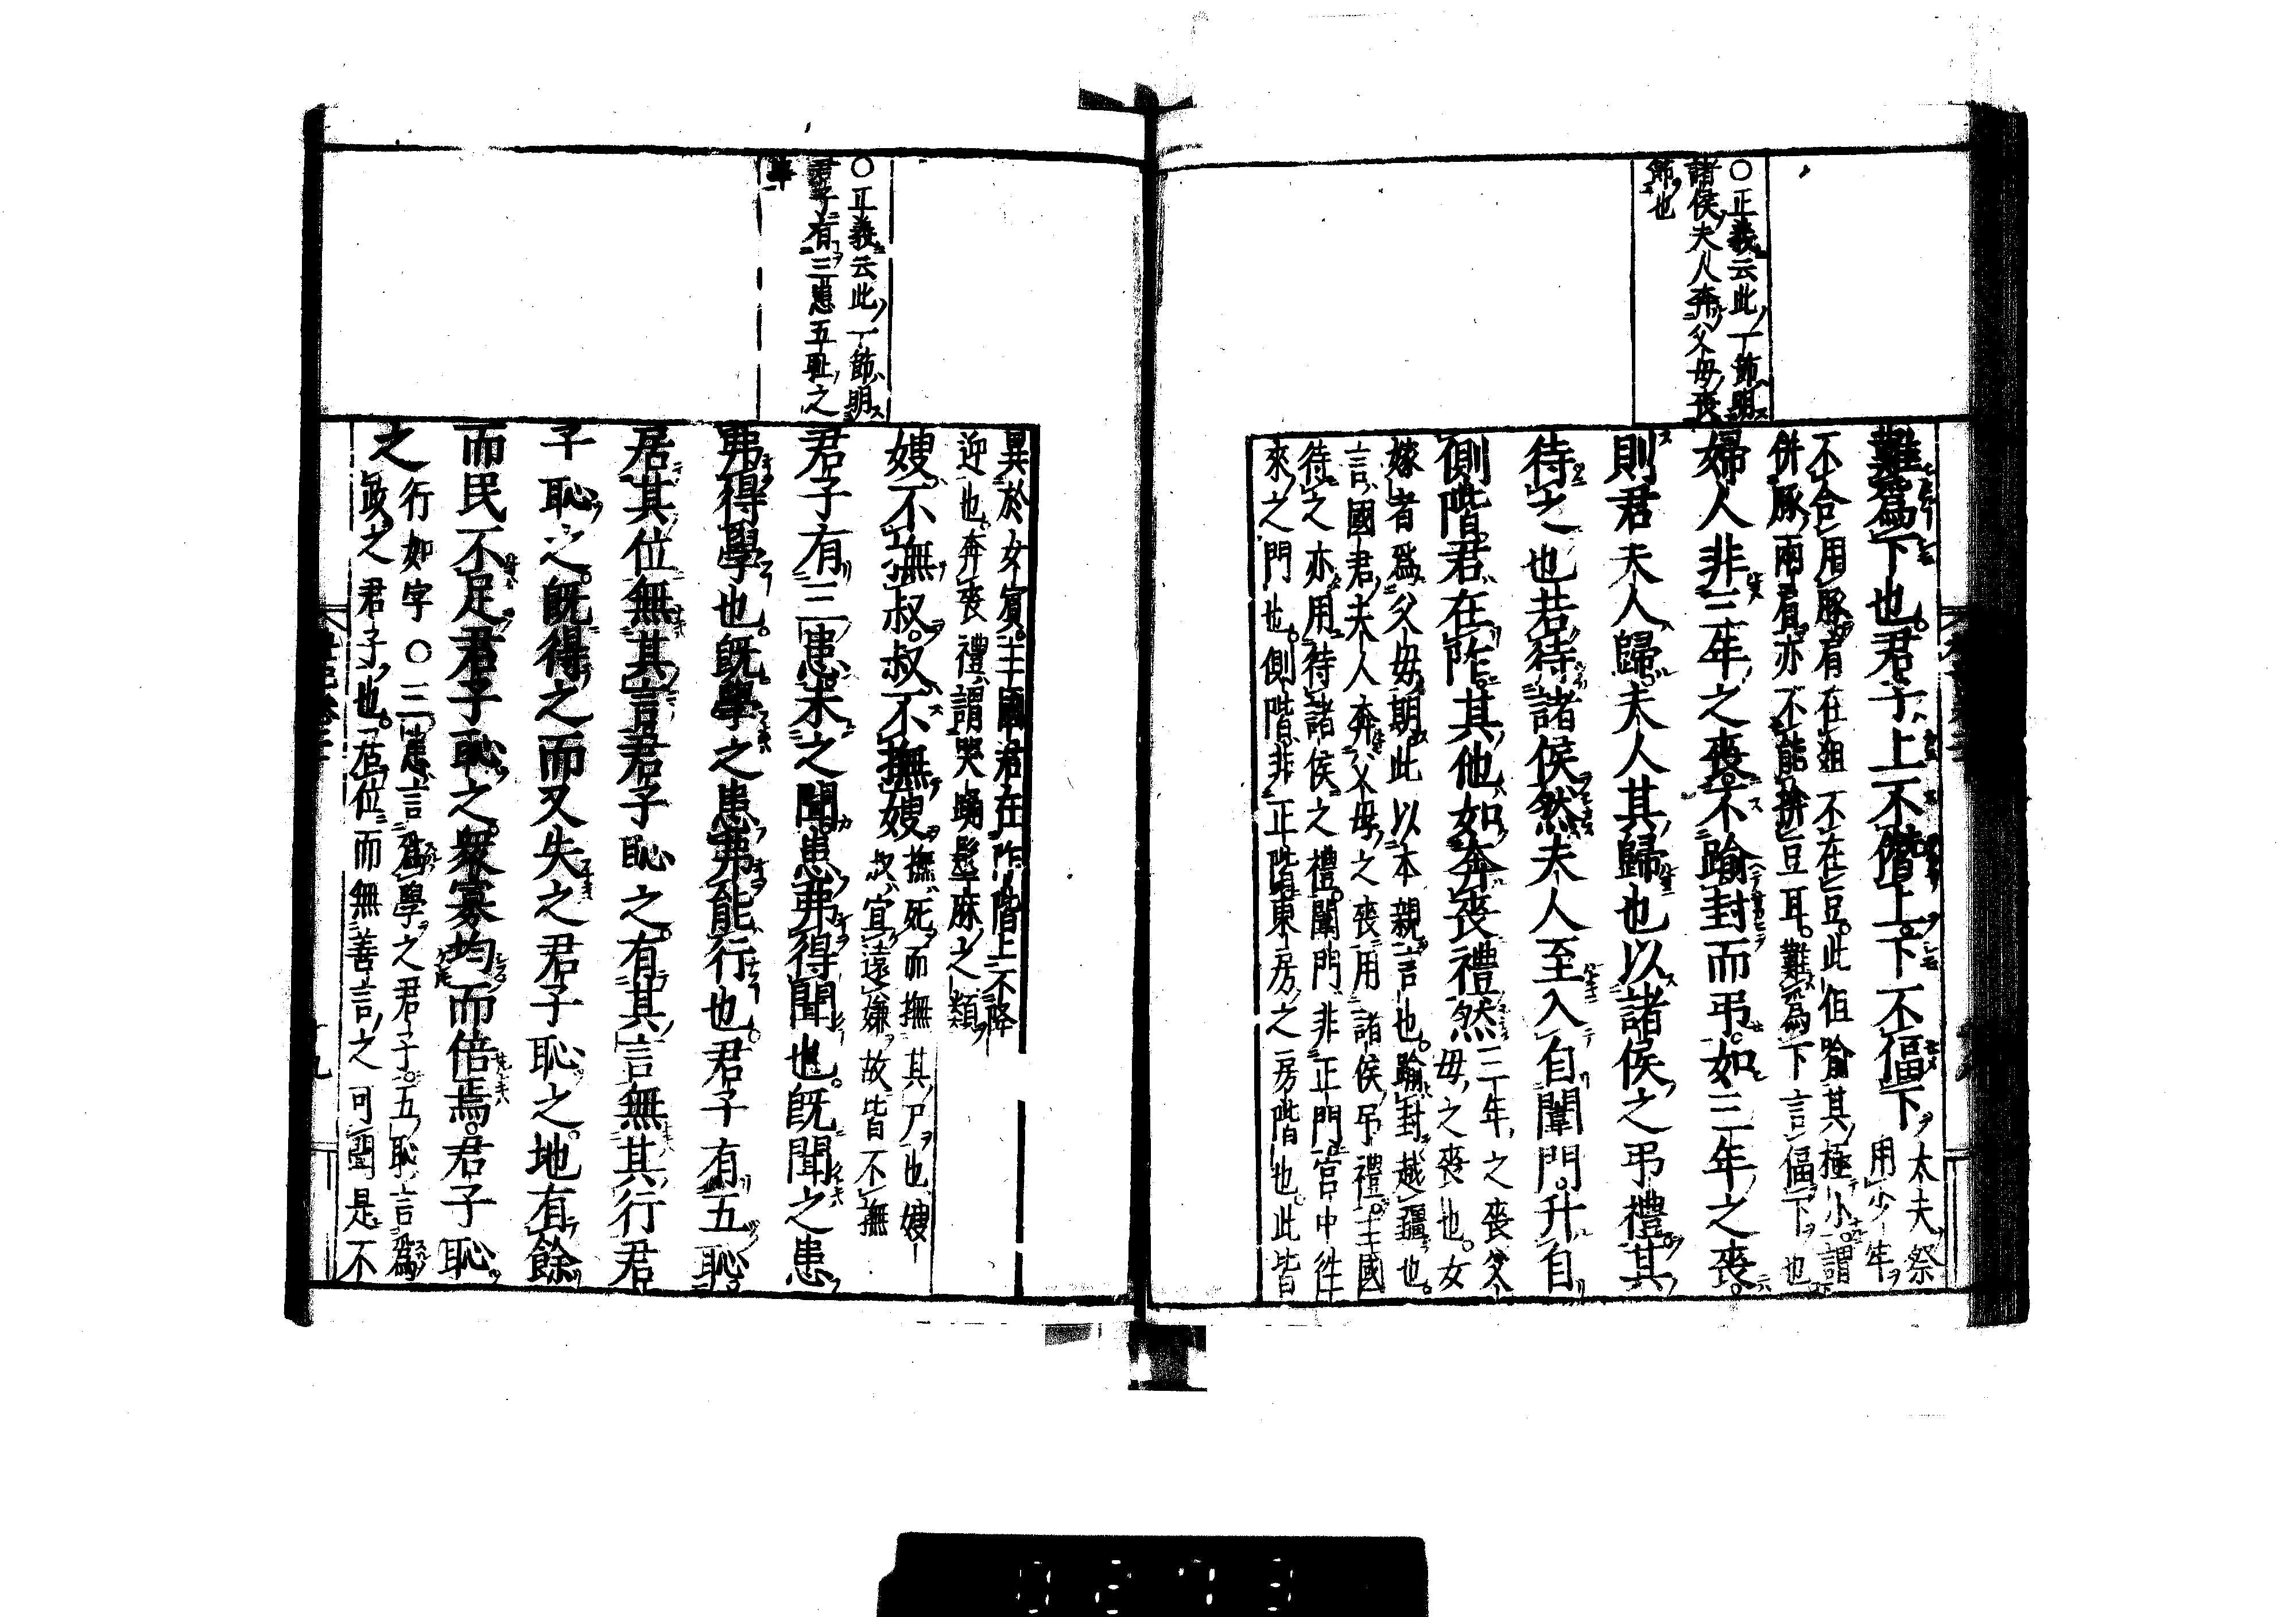 ○正義云此一節明
諸侯夫人奔父母喪
節也
難爲下也君子上不僭上下不偪下大夫祭
用少牢
不合用豚肩在俎不在豆此但喻其極小謂
併豚兩肩亦不能揜豆耳難爲下言偪下也
婦人非三年之喪不踰封而弔如三年之喪
則君夫人歸夫人其歸也以諸侯之弔禮其
待之也若待諸侯然夫人至入自闈門升自
側階君在阼其他如奔喪禮然三年之喪父
母之喪也女
嫁者爲父母期此以本親言也踰封越疆也
言國君夫人奔父母之喪用諸侯弔禮主國
待之亦用待諸侯之禮闈門非正門宮中往
來之門也側階非正階東房之房階也此皆
○正義云此一節明
君子有三患五恥之
事
異於女賓主國君在阼階上不降
迎也奔喪禮謂哭踊髽麻之類
嫂不撫叔叔不撫嫂撫死而撫其尸也嫂
叔宜遠嫌故皆不撫
君子有三患未之聞患弗得聞也既聞之患
弗得學也既學之患弗能行也君子有五恥
居其位無其言君子恥之有其言無其行君
子恥之既得之而又失之君子恥之地有餘
而民不足君子恥之衆寡均而倍焉君子恥
之行如字○三患言爲學之君子五恥言爲
政之君子也居位而無善言之可聞是不